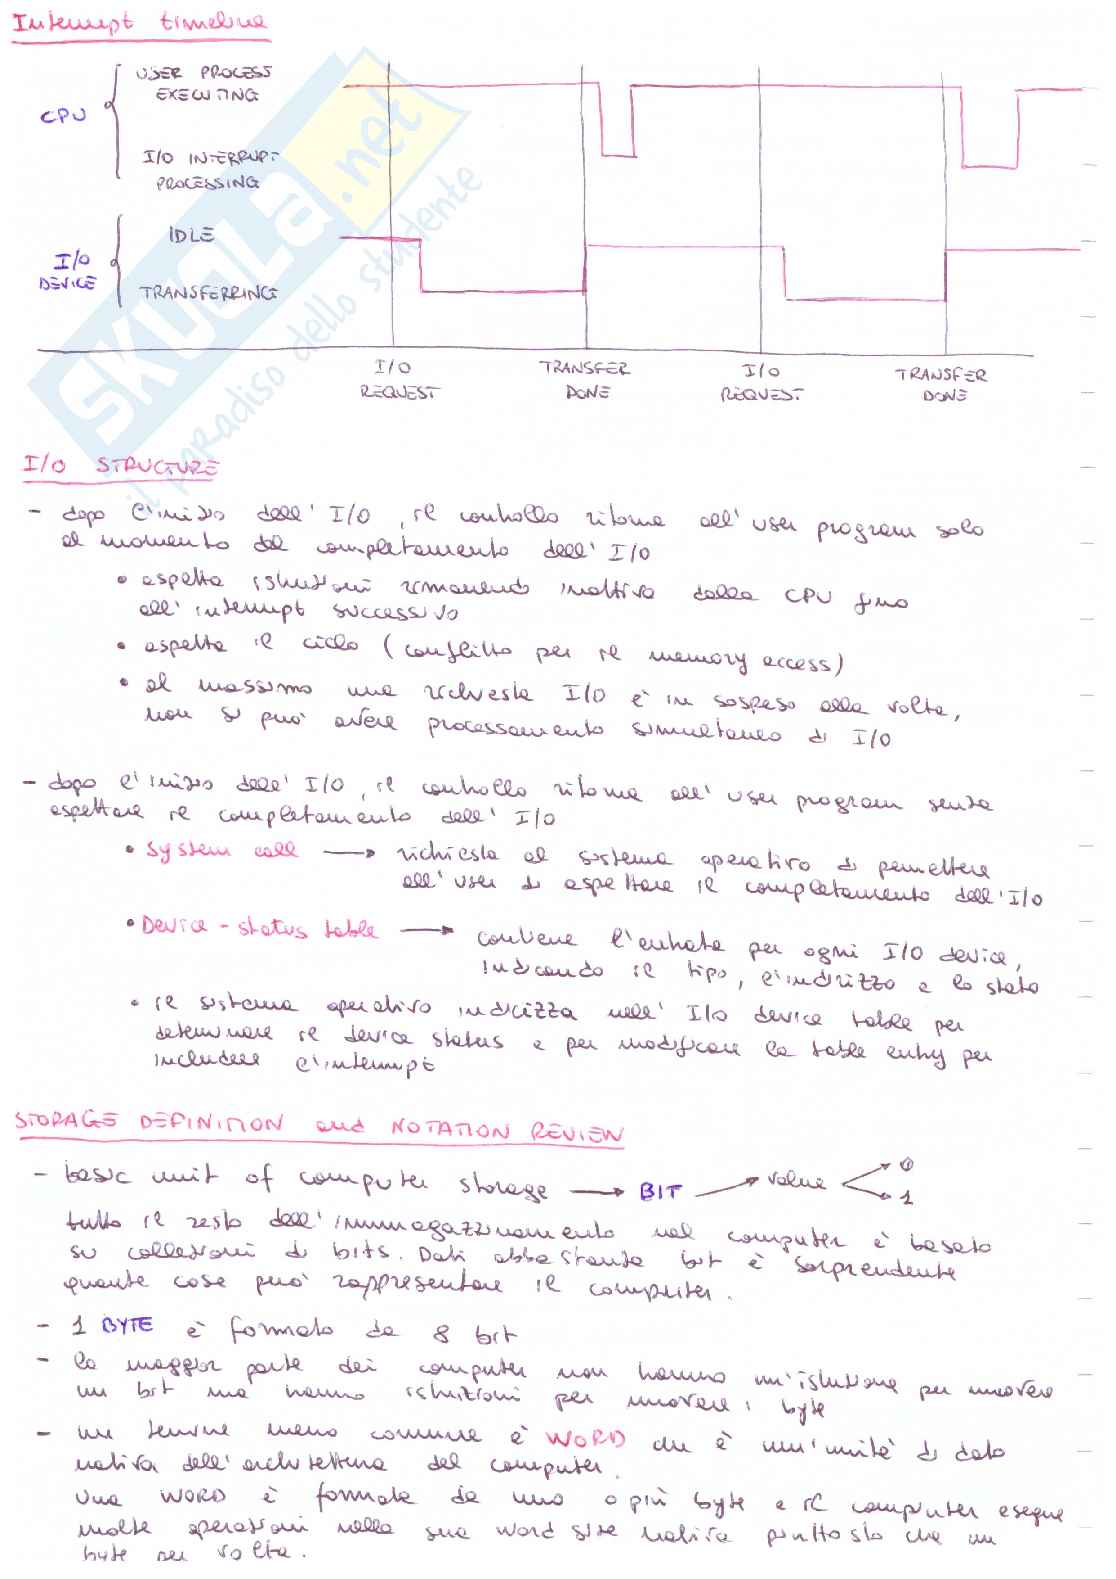 Interrupt timeline
USER PROCESS
EXECUTING
CPU
I/O INTERRUPT
PROCESSING
IDLE
I/O
DEVICE
TRANSFERRING
I/O
REQUEST
TRANSFER
DONE
I/O
REQUEST
TRANSFER
DONE
SKUOLA.net
il paradiso dello studente
I/O STRUCTURE
- dopo l'inizio dell'I/O, il controllo ritorna all'user program solo
al momento del completamento dell'I/O
• aspetta istruzioni rimanendo inattiva dalla CPU fino
all'interrupt successivo
• aspetta il ciclo (conflitto per il memory access)
• al massimo una richiesta I/O è in sospeso alla volta,
non si può avere processamento simultaneo di I/O
- dopo l'inizio dell'I/O, il controllo ritorna all'user program senza
aspettare il completamento dell'I/O
• System call → richiesta al sistema operativo di permettere
all'user di aspettare il completamento dell'I/O
• Device-status table → contiene l'entrata per ogni I/O device,
indicando il tipo, l'indirizzo e lo stato
• il sistema operativo indicizza nell'I/O device table per
determinare il device status e per modificare la table entry per
includere l'interrupt
STORAGE DEFINITION and NOTATION REVIEW
- basic unit of computer storage → BIT → value 0
1
tutto il resto dell'immagazzinamento nel computer è basato
su collezioni di bits. Dati abbastanza bit è sorprendente
quante cose può rappresentare il computer.
- 1 BYTE è formato da 8 bit
- la maggior parte dei computer non hanno un'istruzione per muovere
un bit ma hanno istruzioni per muovere i byte
- un termine meno comune è WORD che è un'unità di dato
nativa dell'architettura del computer.
Una WORD è formata da uno o più byte e il computer esegue
molte operazioni nella sua word size nativa piuttosto che un
byte per volta.